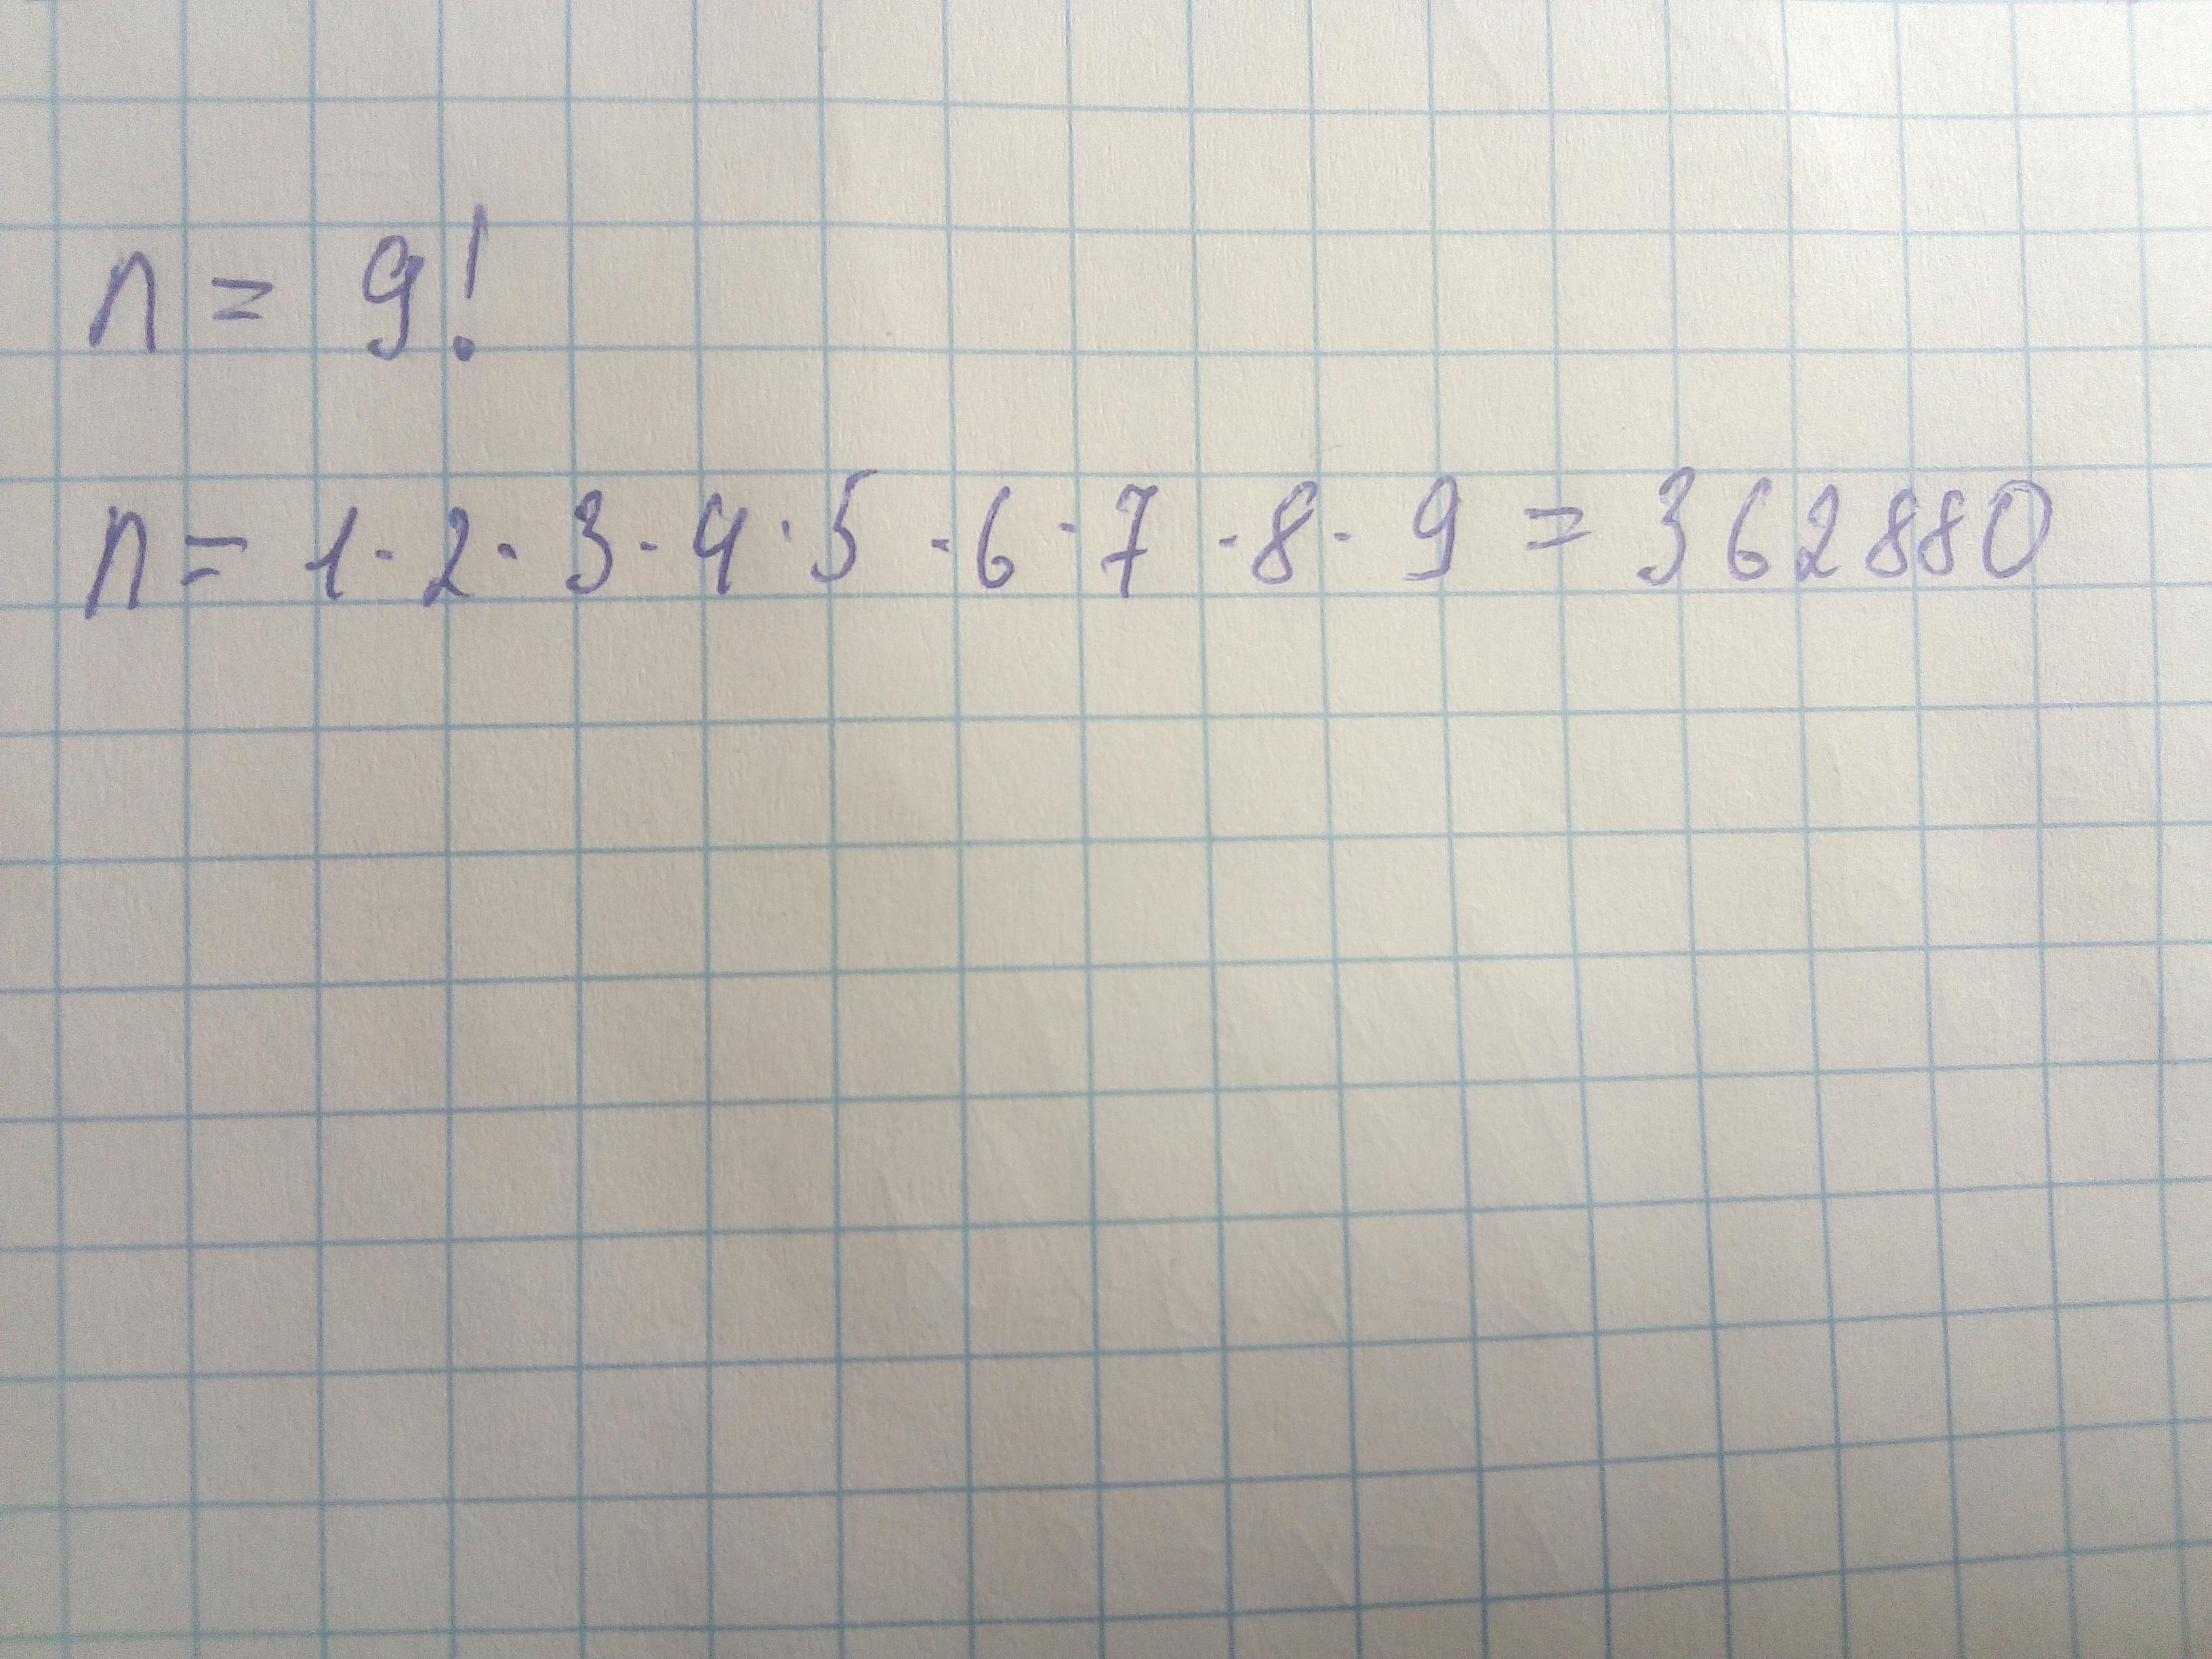 n = 9!
n = 1 · 2 · 3 · 4 · 5 · 6 · 7 · 8 · 9 = 362880